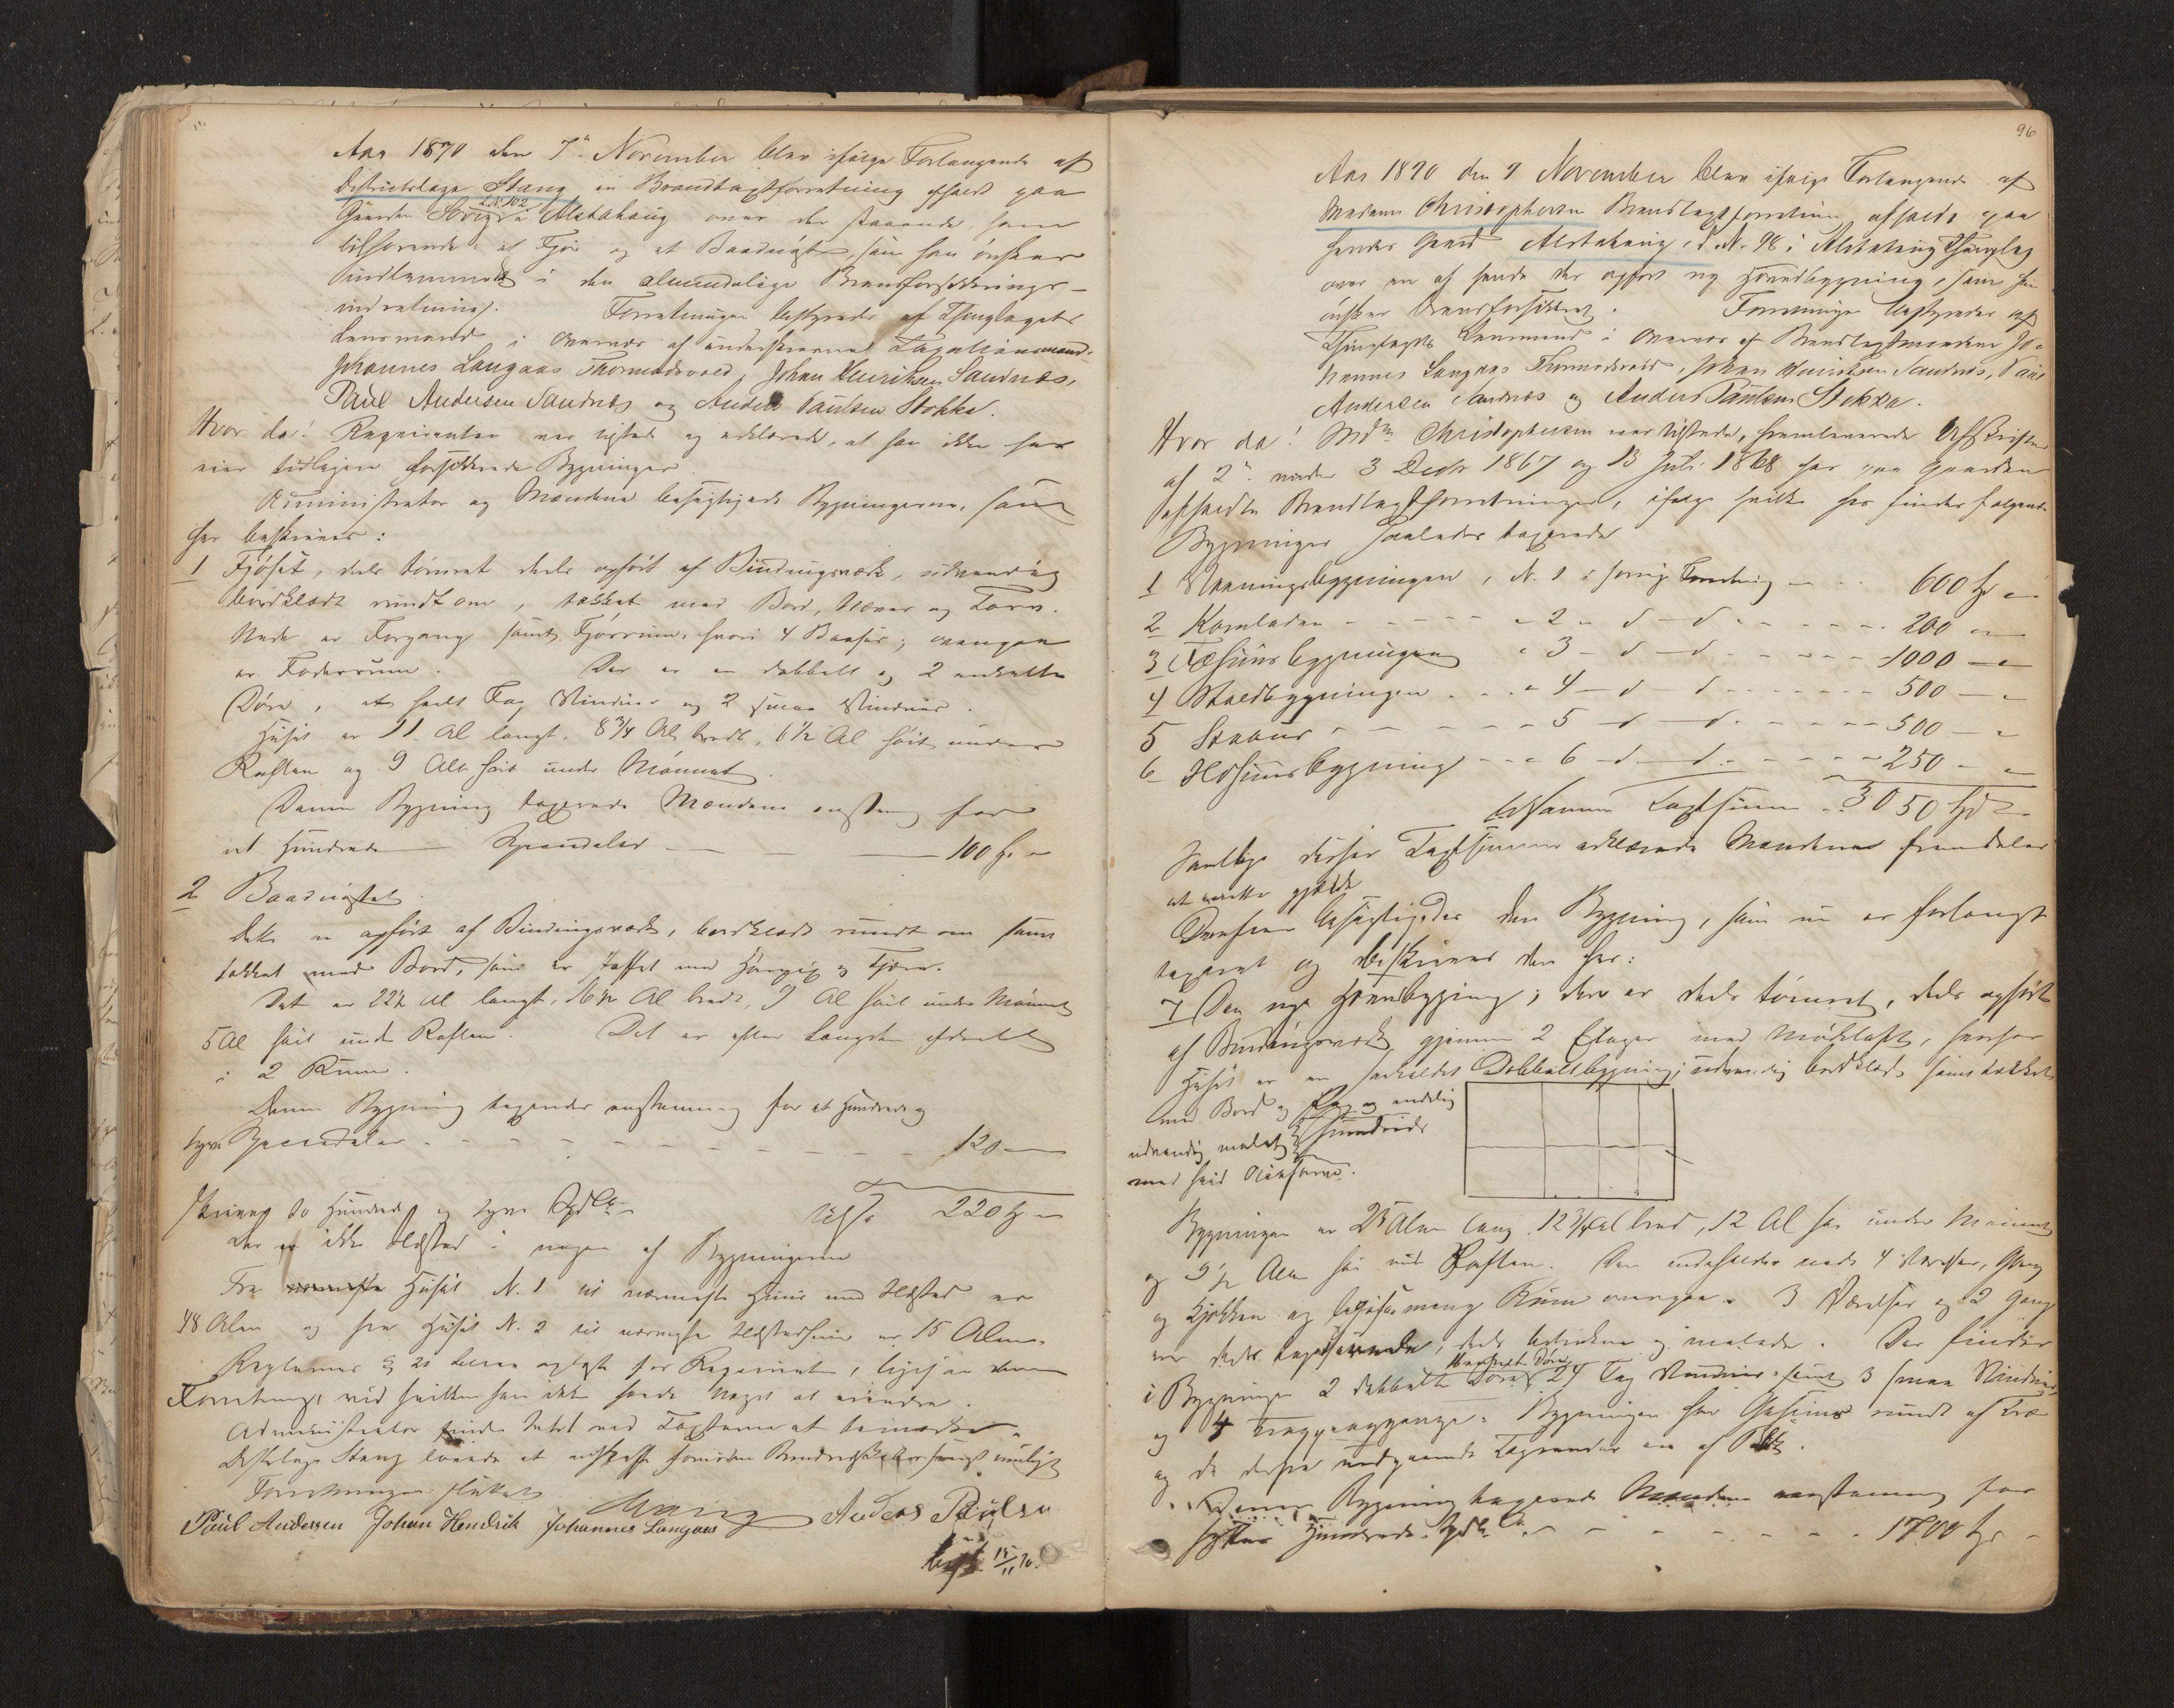 Aar 1870 den 7de November blev ifølge Forlangende af
Districtslæge Stang en Brandtaxtforretning afholdt paa
Gaarden L.N. 102 i Alstahaug over de staaende, ham
tilhørende: et Fjøs og et Baadnøst, som han ønsker
indlemmet i den almindelige Brandforsikrings-
indretning. Forretningen bestyredes af Thinglagets
Lensmand i Overvær af undertegnede Taxationsmænd:
Johannes Langaas Thormodsvold, Johan Henriksen Sandnæs,
Paul Andersen Sandnæs og Anders Paulsen Stokka.
Hvor da! Requirenten var tilstede og erklærede, at han ikke har
eier tidligere forsikrede Bygninger.
Administrator og Mændene besigtigede Bygningerne, som
her beskrives:
1 Fjøset, dels tømret dels opført af Bindingsværk, udvendig
bordklædt rundt om, tækket med Bord, Næver og Torv.
Nede er Forgang samt Fjøsrum, hvori 4 Baase; ovenpaa
er Foderrum. Der er en dobbelt og 2 enkelte
Døre, et heelt Fag Vinduer og 2 smaa Vinduer.
Huset er 11 Al langt, 8 3/4 Al bredt, 6 1/2 Al høit under
Raften og 9 Alen høit under Mønnet.
Denne Bygning taxerede Mændene enstemmig for
et Hundrede Speciedaler — — — 100 Sp. "
2 Baadnøstet.
Dette er opført af Bindingsværk, bordklædt rundt om samt
tækket med Bord, som er
Det er 22 1/2 Al langt, 16 1/2 Al bredt, 9 Al høit under Mønnet
5 Al høit under Raften. Det er efter Længden afdeelt
i 2 Rum.
Denne Bygning taxeredes enstemmig for et Hundrede og
tyve Speciedaler - - - - - - - - 120 —
Skriver to Hundrede og tyve Spdlr 220 Sp "
Der er ikke Ildsted i nogen af Bygningerne
Fra Huset N. 1 til nærmeste Huus med Ildsted er
48 Alen og fra Huset N. 2 til nærmeste Ildstedhuus er 15 Alen.
Reglernes § 21 blev oplæste for Requirenten, ligesaa denne
Forretning, ved hvilken han ikke havde Noget at erindre.
Administrator finder Intet ved Taxterne at bemærke.
Districtslæge Stang lovede at anskaffe fornødne Brandredskaber snarest muligt
Forretningen sluttet
Paul Andersen Johan Hendrik Johannes Langaas Anders Paulsen
15/11 70.
96
Aar 1870 den 7 November blev ifølge Forlangende af
Madame Christophersen Brandtaxtforretning afholdt paa
hendes Gaard Alstahaug, L.N. 98 i Alstahaug Thinglag
over en af hende der opført ny Hovedbygning, som hun
ønsker brandforsikret. Forretningen bestyredes af
Thinglagets Lensmand i Overvær af Brandtaxtmændene Jo-
hannes Langaas Thormodsvold, Johan Henriksen Sandnæs, Paul
Andersen Sandnæs og Anders Paulsen Stokka.
Hvor da! Mdm Christophersen var tilstede, fremleverede Udskrifter
af 2de under 3 Decbr 1867 og 13 Juli 1868 her paa Gaarden
afholdte Brandtaxtforretninger, ifølge hvilke her findes følgende
Bygninger saaledes taxerede
1 Vaaningsbygningen, N. 1 i forrige Forretning - - 600 Sp "
2 Kornladen - - - - " 2 " d - d - - - - - 200 "
3 Fæhuusbygningen " 3 - d - d - - - - 1000 — "
4 Staldbygningen - - " 4 - d d - - - - - 500 — "
5 Stabur - - - - - 5 - d - d - - - - 500 — "
6 Ildhuusbygning - - " 6 - d - d - - - - - 250 - "
tilsammen Taxtsum - 3050 Spd "
Samtlige disse Taxtsummer erklærede Mændene fremdeles
at maatte gjælde
Derefter besigtigedes den Bygning, som nu er forlangt
taxeret og beskrives den her:
7 Den nye Hovedbygning; den er dels tømret, dels opført
af Bindingsværk gjennem 2 Etager med Mørkloft, hvorfor
Huset er en saakaldet Dobbeltbygning; udvendig bordklædt, samt tækket
med Bord og og endelig
udvendig malet
med hvid Oliefarve.
Bygningen er 25 Alen lang, 12 3/4 Al bred, 12 Al høi under Mønnet
og 9 1/2 Alen høi und Raften. Den indeholder nede 4 Værelser, Gang
og Kjøkken og ligesaamange Rum ovenpaa. 3 Værelser og 2 Gange
er dels tapetserede, dels betrukne og malede. Der findes
i Bygningen 2 dobbelte Døre, 24 Fag Vinduer samt 3 smaa Vinduer
og 4 Trappeopgange. Bygningen har Gesims rundt af Træ
og de derfra nedgaaende Tagrender ere af
Denne Bygning taxerede Mændene enstemmig for
sytten Hundrede Spdlr - - - - - - 1700 Sp -